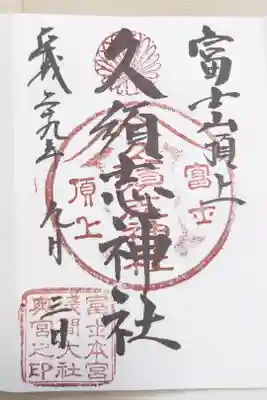 富士山頂上
久須志神社
平成二九年九月三日
富士
頂上
富士本宮
浅間大社
奥宮之印